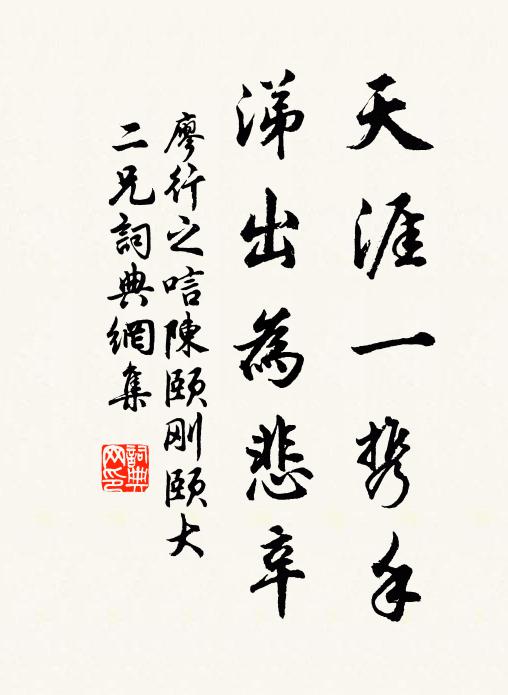 天涯一携手
涕出為悲辛
廖行之唁陳頤剛頤大
二兄詞典網集
詞典網印